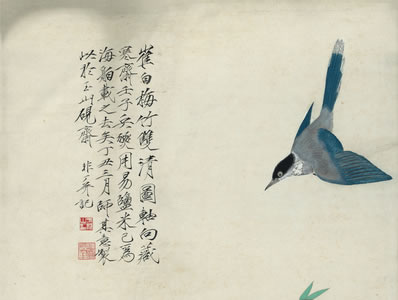 崔白梅竹雙清圖軸向藏
愙齋壬子兵燹用易鹽米已為
海舶載之去矣丁丑三月師其意製
此於玉山硯齋 非闇記